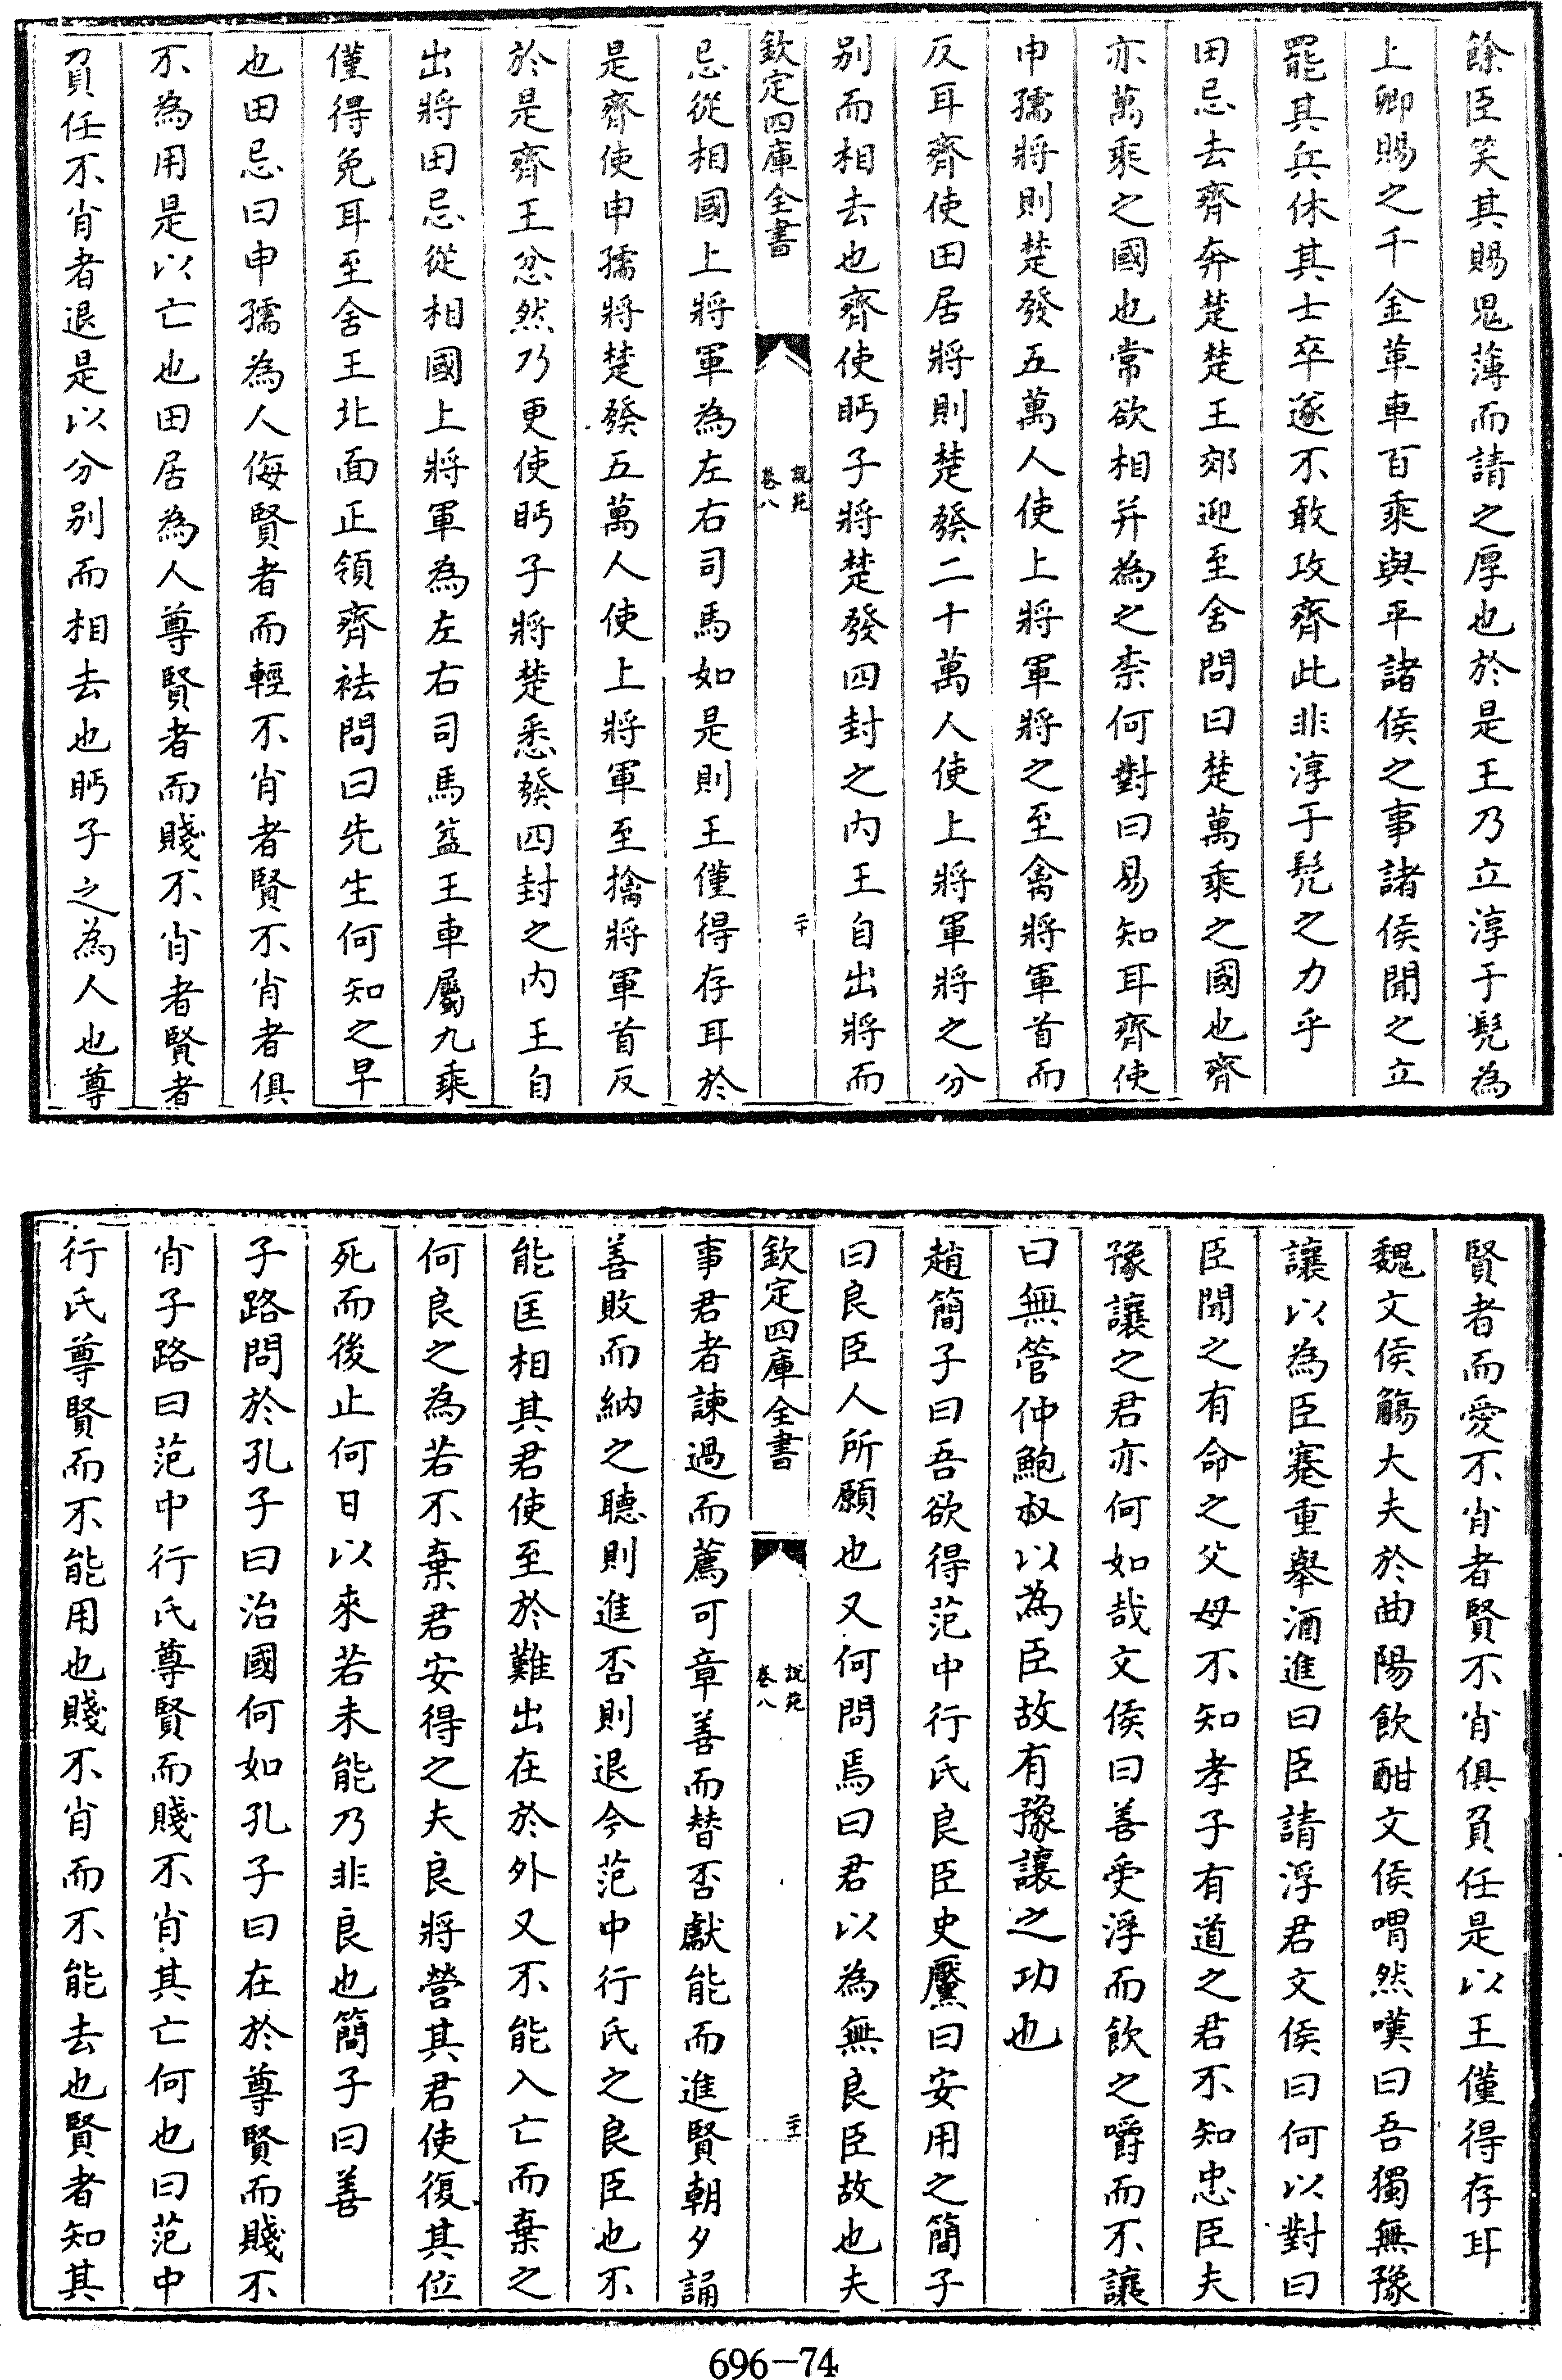 餘臣笑其賜鬼薄而請之厚也於是王乃立淳于髡為
上卿賜之千金革車百乘與平諸侯之事諸侯聞之立
罷其兵休其士卒遂不敢攻齊此非淳于髡之力乎
田忌去齊奔楚楚王郊迎至舍問曰楚萬乘之國也齊
亦萬乘之國也常欲相并為之柰何對曰易知耳齊使
申孺將則楚發五萬人使上將軍將之至禽將軍首而
反耳齊使田居將則楚發二十萬人使上將軍將之分
别而相去也齊使眄子將楚發四封之内王自出將而
欽定四庫全書
說苑
卷八
二十
忌從相國上將軍為左右司馬如是則王僅得存耳於
是齊使申孺將楚發五萬人使上將軍至擒將軍首反
於是齊王忿然乃更使眄子將楚悉發四封之内王自
出將田忌從相國上將軍為左右司馬益王車屬九乘
僅得免耳至舍王北面正領齊袪問曰先生何知之早
也田忌曰申孺為人侮賢者而輕不肖者賢不肖者俱
不為用是以亡也田居為人尊賢者而賤不肖者賢者
負任不肖者退是以分别而相去也眄子之為人也尊
賢者而愛不肖者賢不肖俱負任是以王僅得存耳
魏文侯觴大夫於曲陽飲酣文侯喟然嘆曰吾獨無豫
讓以為臣蹇重舉酒進曰臣請浮君文侯曰何以對曰
臣聞之有命之父母不知孝子有道之君不知忠臣夫
豫讓之君亦何如哉文侯曰善受浮而飲之嚼而不讓
曰無管仲鮑叔以為臣故有豫讓之功也
趙簡子曰吾欲得范中行氏良臣史黶曰安用之簡子
曰良臣人所願也又何問焉曰君以為無良臣故也夫
欽定四庫全書
說苑
卷八
二十一
事君者諫過而薦可章善而替否獻能而進賢朝夕誦
善敗而納之聽則進否則退今范中行氏之良臣也不
能匡相其君使至於難出在於外又不能入亡而棄之
何良之為若不棄君安得之夫良將營其君使復其位
死而後止何日以來若未能乃非良也簡子曰善
子路問於孔子曰治國何如孔子曰在於尊賢而賤不
肖子路曰范中行氏尊賢而賤不肖其亡何也曰范中
行氏尊賢而不能用也賤不肖而不能去也賢者知其
696-74